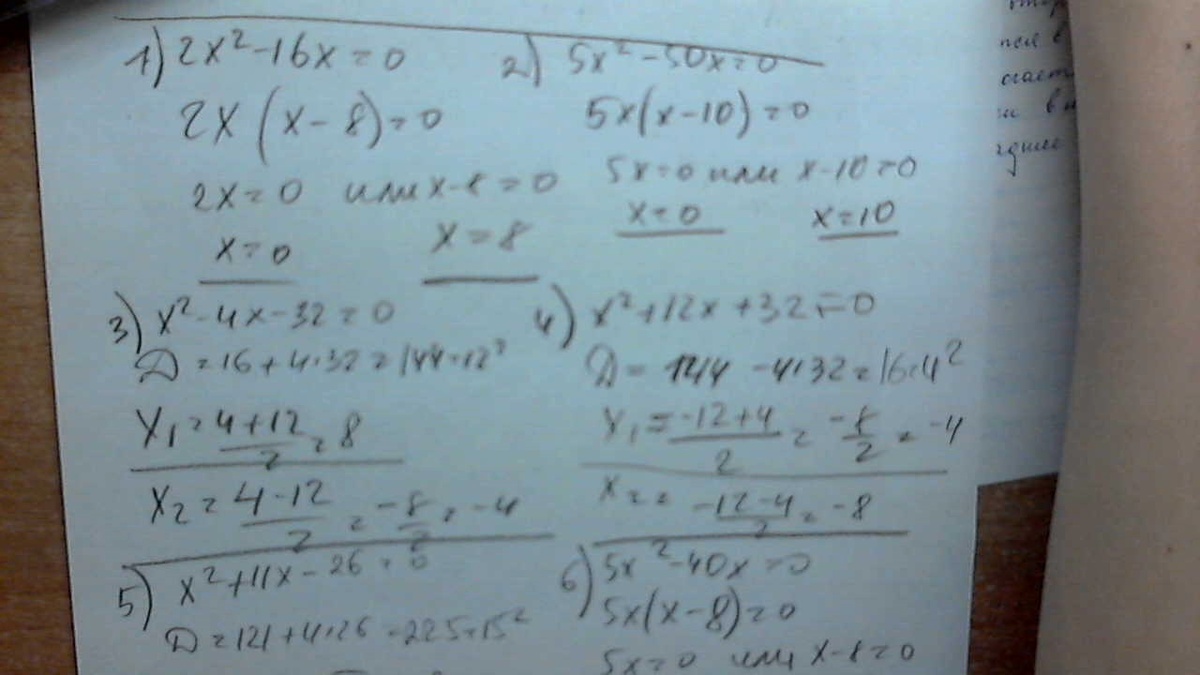 1) 2x²-16x=0
2x(x-8)=0
2x=0 или x-8=0
x=0 x=8
2) 5x²-50x=0
5x(x-10)=0
5x=0 или x-10=0
x=0 x=10
3) x²-4x-32=0
D=16+4·32=144=12²
x₁=4+12/2=8
x₂=4-12/2=-8/2=-4
4) x²+12x+32=0
D=144-4·32=16=4²
x₁=-12+4/2=-8/2=-4
x₂=-12-4/2=-8
5) x²+11x-26=0
D=121+4·26=225=15²
6) 5x²-40x=0
5x(x-8)=0
5x=0 или x-8=0